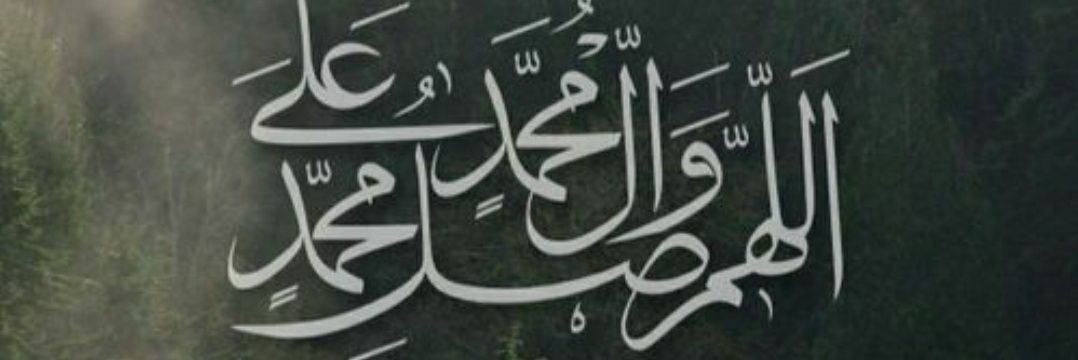 اللَّهُمَّ صَلِّ عَلَى مُحَمَّدٍ وَآلِ مُحَمَّدٍ